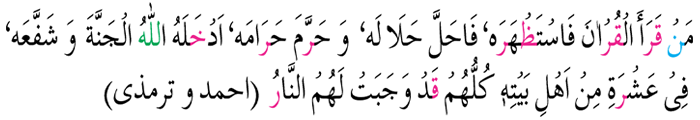 مَنْ قَرَأَ الْقُرْاٰنَ فَاسْتَظْهَرَهٗ فَاَحَلَّ حَلَا لَهٗ وَ حَرَّمَ حَرَامَهٗ اَدْخَلَهُ اللّٰهُ الْجَنَّةَ وَ شَفَّعَهٗ
فِىْ عَشْرَةٍ مِنْ اَهْلِ بَيْتِهٖ كُلُّهُمْ قَدْ وَجَبَتْ لَهُمُ النَّارُ (احمد و ترمذی)